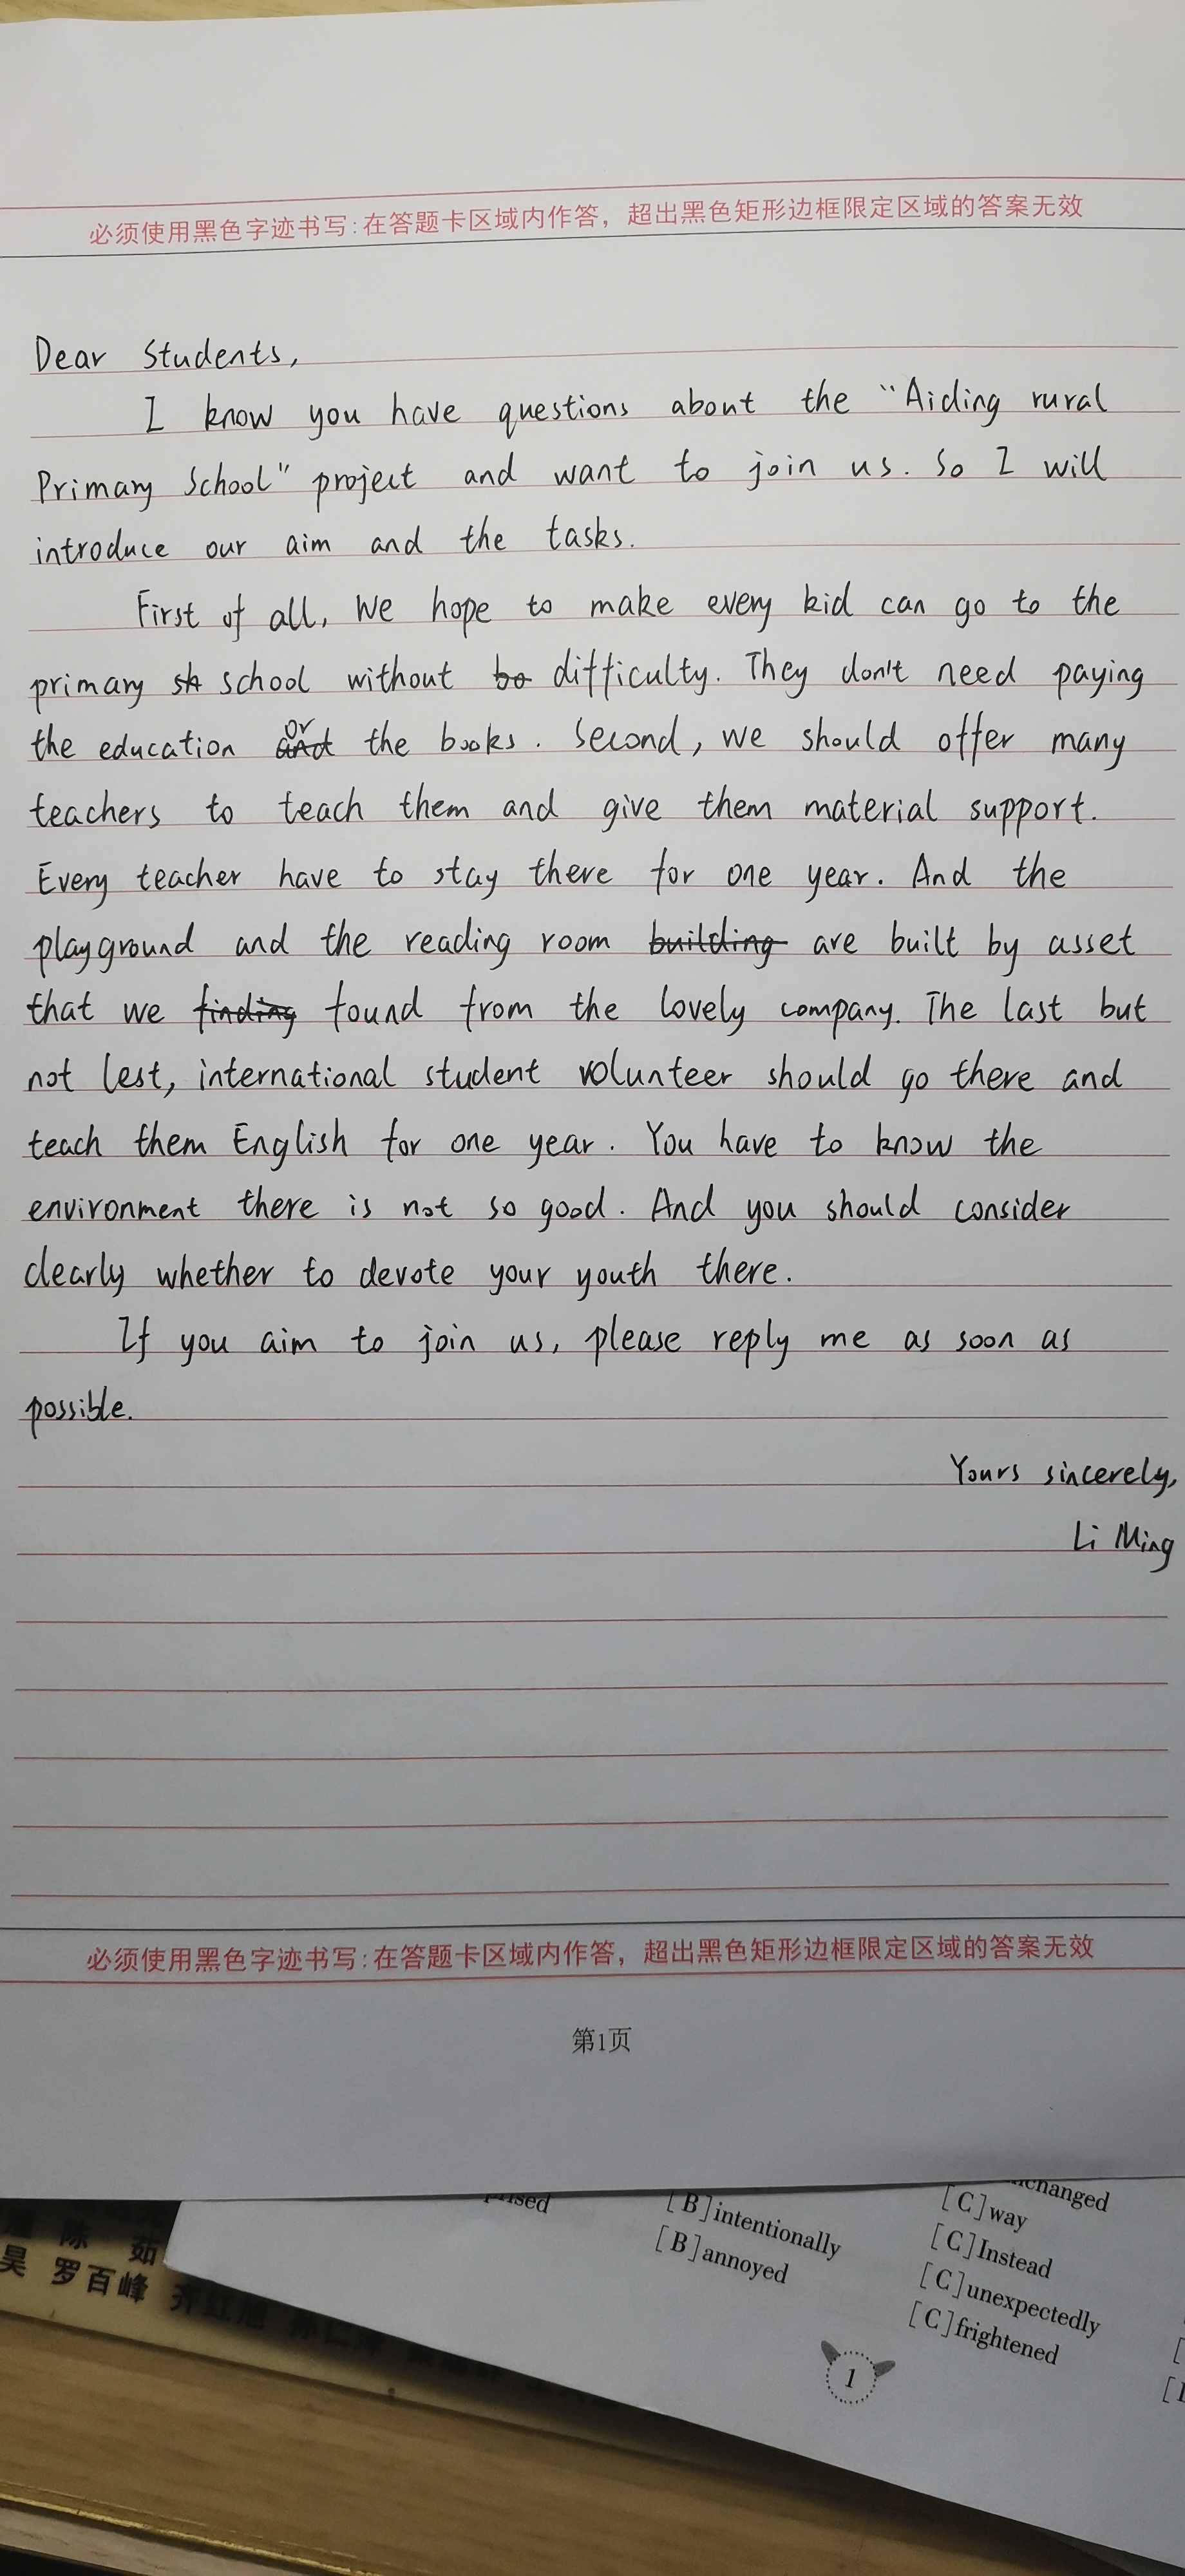 必须使用黑色字迹书写:在答题卡区域内作答，超出黑色矩形边框限定区域的答案无效
Dear Students,
I know you have questions about the "Aiding rural
Primary School" project and want to join us. So I will
introduce our aim and the tasks.
First of all, we hope to make every kid can go to the
primary school without difficulty. They don't need paying
the education or the books. Second, we should offer many
teachers to teach them and give them material support.
Every teacher have to stay there for one year. And the
playground and the reading room building are built by asset
that we finding found from the lovely company. The last but
not lest, international student volunteer should go there and
teach them English for one year. You have to know the
environment there is not so good. And you should consider
clearly whether to devote your youth there.
If you aim to join us, please reply me as soon as
possible.
Yours sincerely,
Li Ming
必须使用黑色字迹书写:在答题卡区域内作答，超出黑色矩形边框限定区域的答案无效
第1页
[B]intentionally
[B]annoyed
[C]way
[C]Instead
[C]unexpectedly
[C]frightened
1
陈 茹
昊 罗百峰